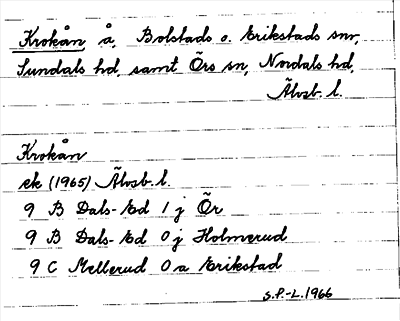 Krokån å, Bolstads o. Erikstads snr,
Sundals hd, samt Örs sn, Nordals hd,
Älvsb. l.
Krokån
ek (1965) Älvsb. l.
9 B Dals-Ed 1 j Ör
9 B Dals-Ed 0 j Holmerud
9 C Mellerud 0 a Erikstad
S.P.-L. 1966